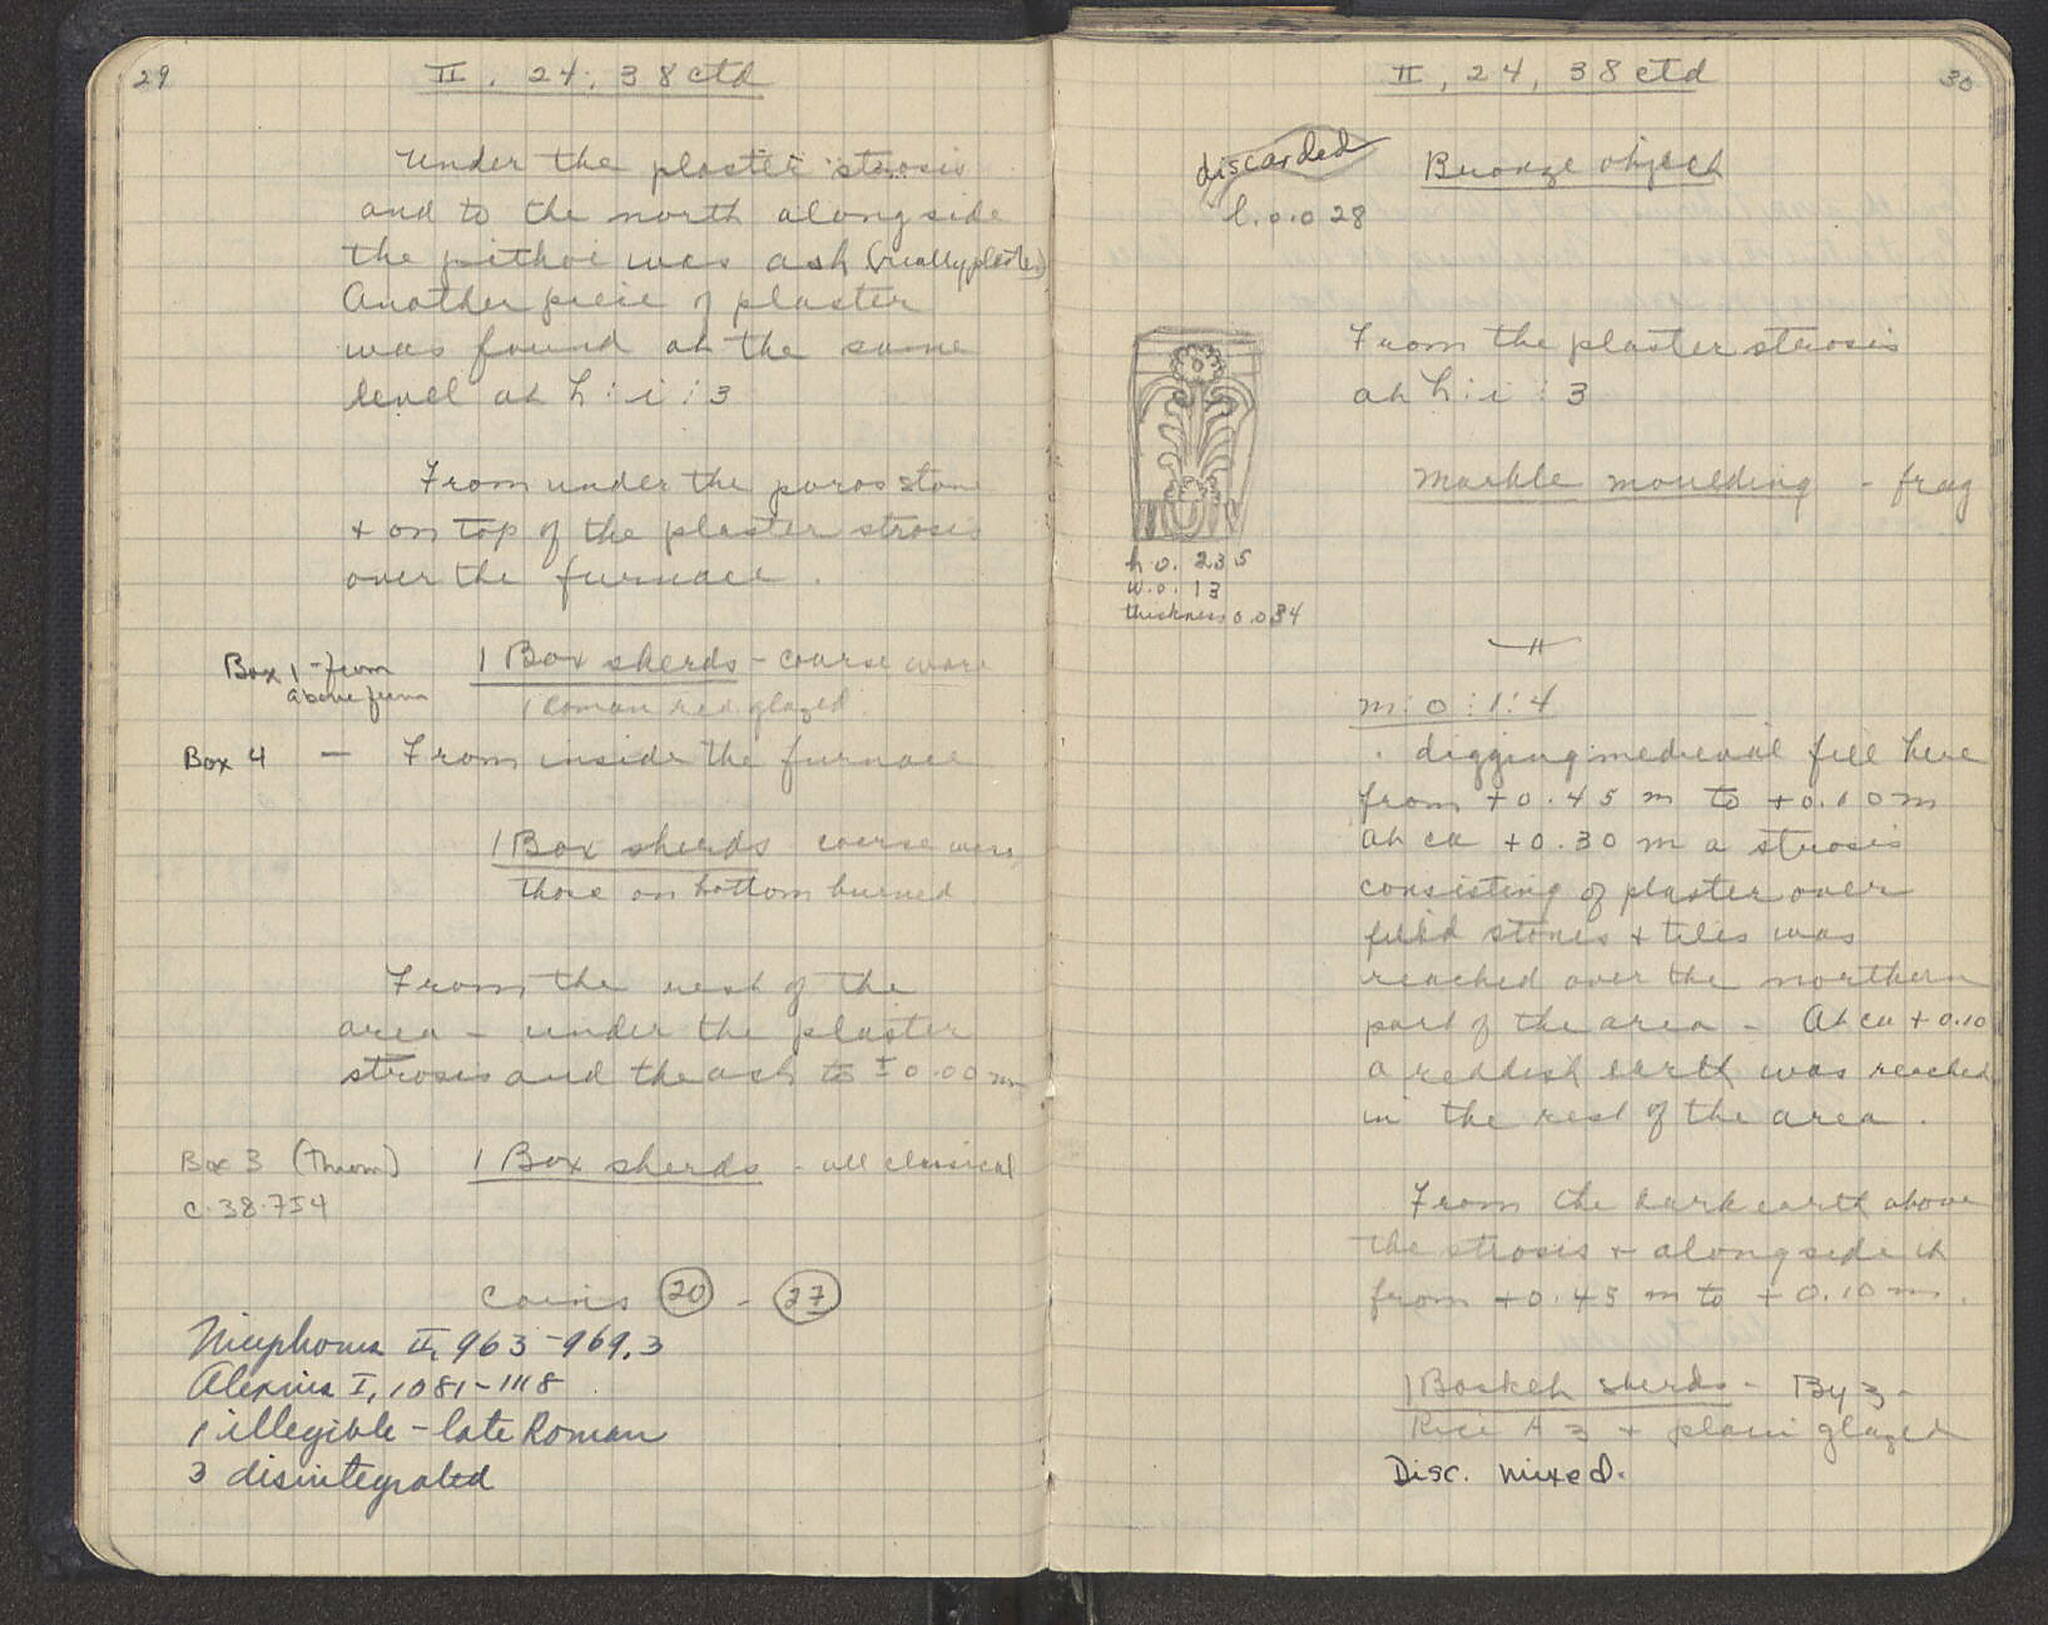 29
II. 24, 38 ctd
Under the plaster strosis
and to the north alongside
the pithoi was ash (really plaster)
Another piece of plaster
was found at the same
level at h : i : 3
From under the poros stone
+ on top of the plaster strosis
over the furnace.
Box 1 - from
above furn
1 Box sherds - coarse ware
1 Roman red glazed
Box 4 — From inside the furnace
1 Box sherds coarse ware
those on bottom burned
From the rest of the
area - under the plaster
strosis and the ash to ±0.00 m
Box 3 (Thrown) 1 Box sherds - all classical
C.38.754
Coins 20 - 27
Nicephorus II, 963-969, 3
Alexius I, 1081-1118
1 illegible - late Roman
3 disintegrated
II, 24, 38 ctd
30
discarded
Bronze object
l. 0.028
From the plaster strosis
at h : i : 3
Marble moulding - frag
h 0.235
w. 0.13
thickness 0.034
m : o : 1 : 4
digging medieval fill here
from +0.45 m to +0.10 m
At ca +0.30 m a strosis
consisting of plaster over
field stones + tiles was
reached over the northern
part of the area - At ca +0.10
a reddish earth was reached
in the rest of the area.
From the dark earth above
the strosis + alongside it
from +0.45 m to +0.10 m.
1 Basket sherds - By 3 -
Rice A 3 + plain glazed
Disc. mixed.